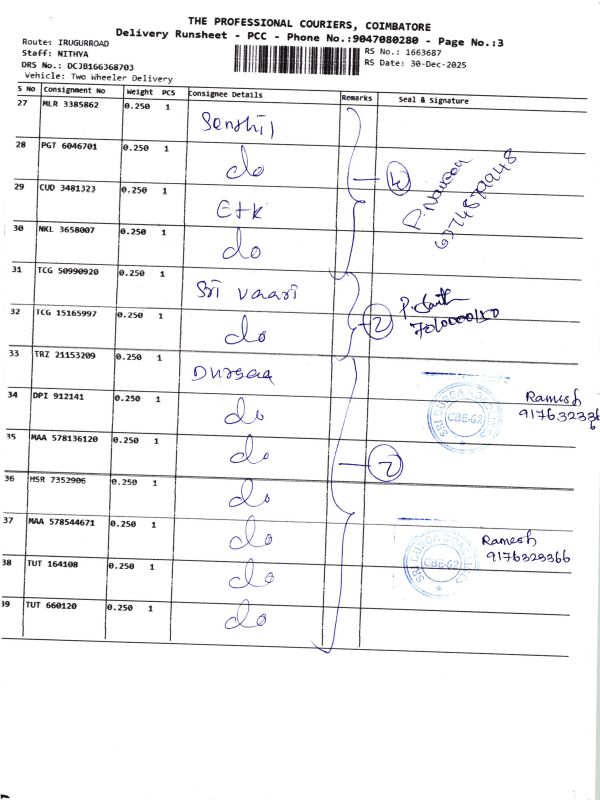 THE PROFESSIONAL COURIERS, COIMBATORE
Delivery Runsheet - PCC - Phone No.:9047080280 - Page No.:3
Route: IRUGURROAD
Staff: NITHYA
RS No.: 1663687
DRS No.: DCJB166368703
RS Date: 30-Dec-2025
Vehicle: Two Wheeler Delivery
S No Consignment No Weight PCS Consignee Details Remarks Seal & Signature
27 MLR 3385862 0.250 1 Senthil
28 PGT 6046701 0.250 1 do
4
29 CUD 3481323 0.250 1 Etk
P. Naveen
30 NKL 3658007 0.250 1 do
31 TCG 50990920 0.250 1 Sri Vaari
32 TCG 15165997 0.250 1 do
2
33 TRZ 21153209 0.250 1 Durgaa
34 DPI 912141 0.250 1 do
Ramesh
SRI DURGA
CBE-62
35 MAA 578136120 0.250 1 do
7
36 HSR 7352906 0.250 1 do
37 MAA 578544671 0.250 1 do
Ramesh
9176323366
SRI DURGA
CBE-62
38 TUT 164108 0.250 1 do
39 TUT 660120 0.250 1 do